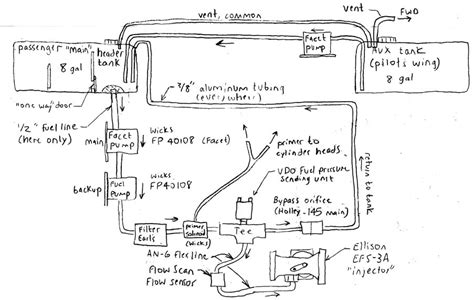 vent
FWD
vent, common
passenger "main"
header
tank
8 gal
Facet
Pump
AUX tank
(pilots wing)
8 gal
"one way" door
3/8" aluminum tubing
(everywhere)
1/2" fuel line
(here only)
main
Facet
Pump
Wicks
FP 40108 (Facet)
primer to
cylinder heads
VDO Fuel pressure
sending unit
return to tank
backup
Fuel
Pump
Wicks
FP40108
Bypass orifice
(Holley -145 main)
Filter
Earls
primer
solenoid
(Wicks)
Tee
AN-6 flex line
Flow Scan
flow sensor
Ellison
EFS-3A
"injector"